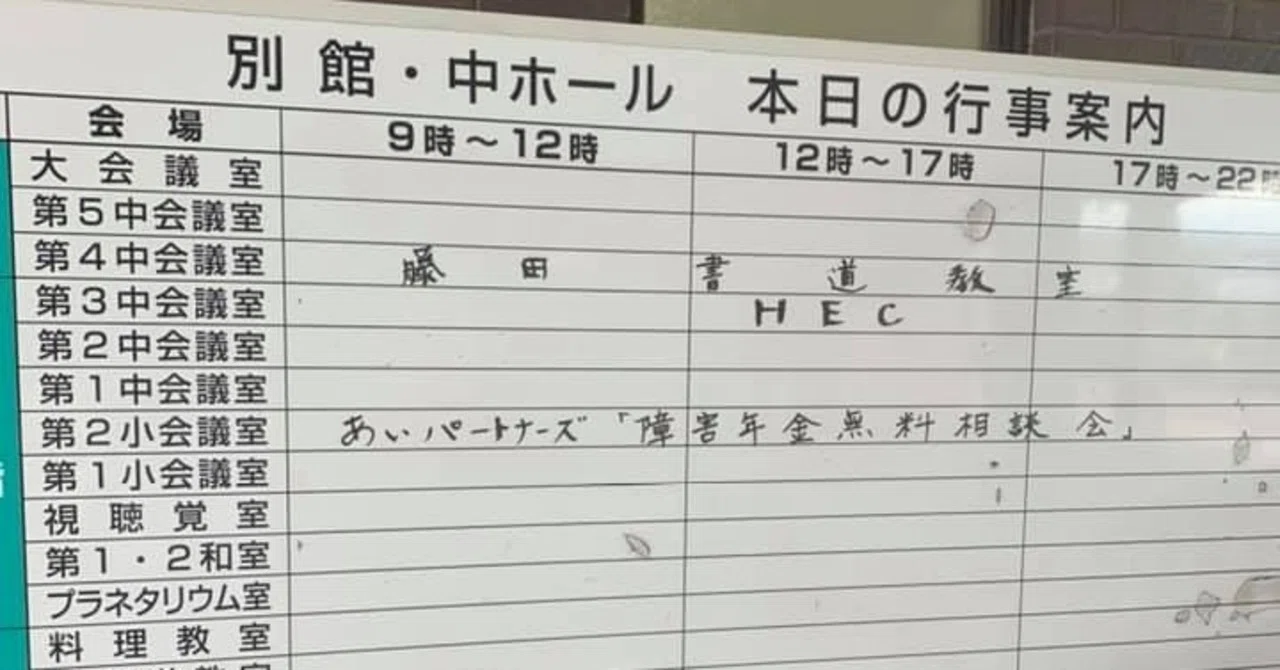 別館・中ホール 本日の行事案内
会場 9時～12時 12時～17時 17時～22時
大会議室
第5中会議室
第4中会議室 藤田書道教室
第3中会議室 HEC
第2中会議室
第1中会議室
第2小会議室 あいパートナーズ「障害年金無料相談会」
第1小会議室
視聴覚室
第1・2和室
プラネタリウム室
料理教室